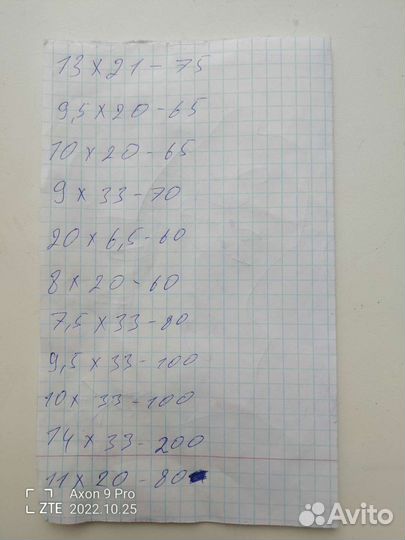 13 x 21 - 75
9,5 x 20 - 65
10 x 20 - 65
9 x 33 - 70
20 x 6,5 - 60
8 x 20 - 60
7,5 x 33 - 80
9,5 x 33 - 100
10 x 33 - 100
14 x 33 - 200
11 x 20 - 80
Axon 9 Pro
ZTE 2022.10.25
Avito